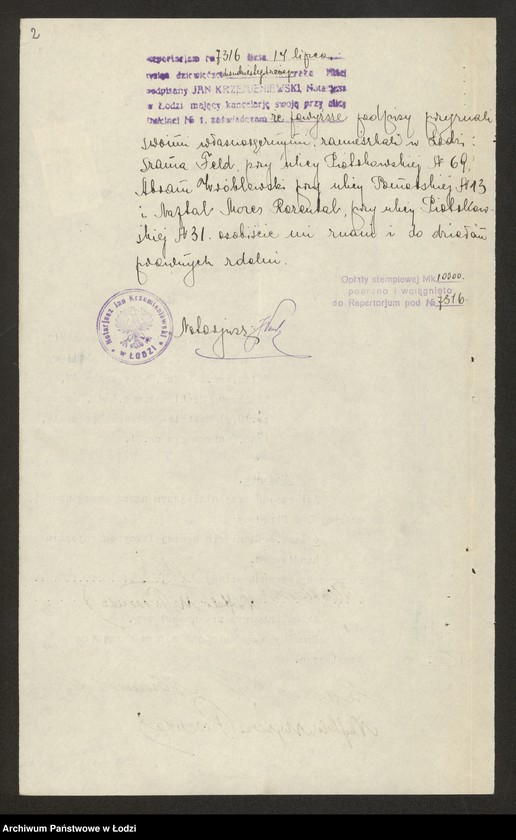 2
Repertorjum № 7316 dnia 14 lipca
tysiąc dziewięćset dwudziestego trzeciego roku
podpisany JAN KRZEMIENIEWSKI, Notarjusz
w Łodzi mający kancelarję swoją przy ulicy
№ 1, zaświadczam że powyższe podpisy przyznali
swemi własnoręcznymi, zamieszkali w Łodzi:
Szama Feld, przy ulicy Piotrkowskiej № 69,
Abram Wróblewski przy ulicy Pomorskiej № 13
i Naftal Mozes Rozental, przy ulicy Piotrkow-
skiej № 31. osobiście mi znani i do działań
prawnych zdolni.
Opłaty stemplowej Mk. 10000.
pobrano i wciągnięto
do Repertorjum pod № 7316.
Notarjusz Jan Krzemieniewski
w ŁODZI
Notarjusz
Archiwum Państwowe w Łodzi